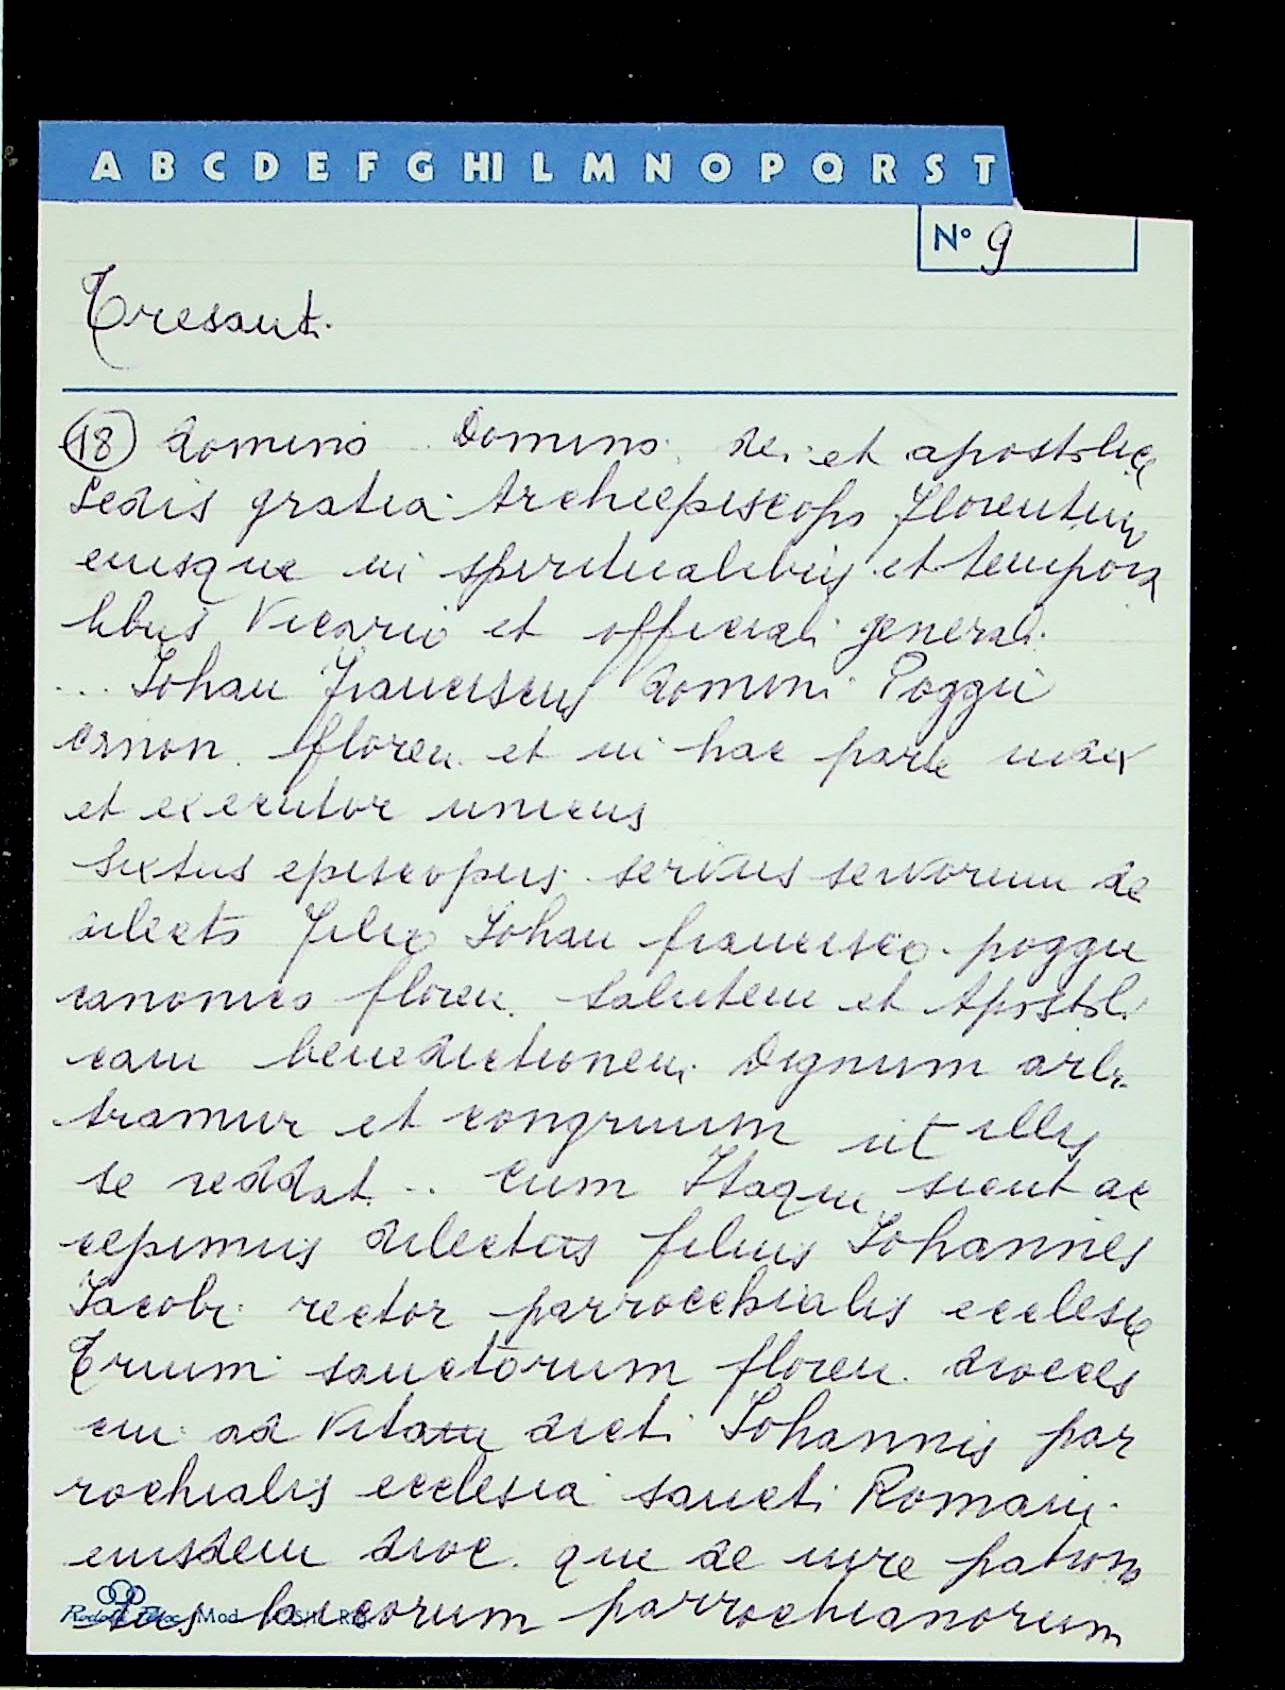 A B C D E F G HI L M N O P Q R S T
N° 9
Tresanti
18 domino Domino dei et apostolice
sedis gratia Archiepiscopo florentino
eiusque in spiritualibus et tempora
libus Vicario et officiali generali
... Iohan Franciscus domini Poggii
canon. floren. et in hac parte iudex
et executor unicus
Sixtus episcopus servus servorum dei
dilecto filio Iohan francisco poggii
canonico floren. Salutem et Apostoli
cam benedictionem. Dignum arbi
tramur et congruum ut illis
se reddat .. Cum Itaque sicut ac
cepimus dilectus filius Iohannes
Iacobi rector parrocchialis ecclesie
Trium sanctorum floren. dioces
cui ad Vitam dicti Iohannis par
rochialis ecclesia sancti Romani
eiusdem dioc. que de iure patrona
tus laicorum parrochianorum
Mod.